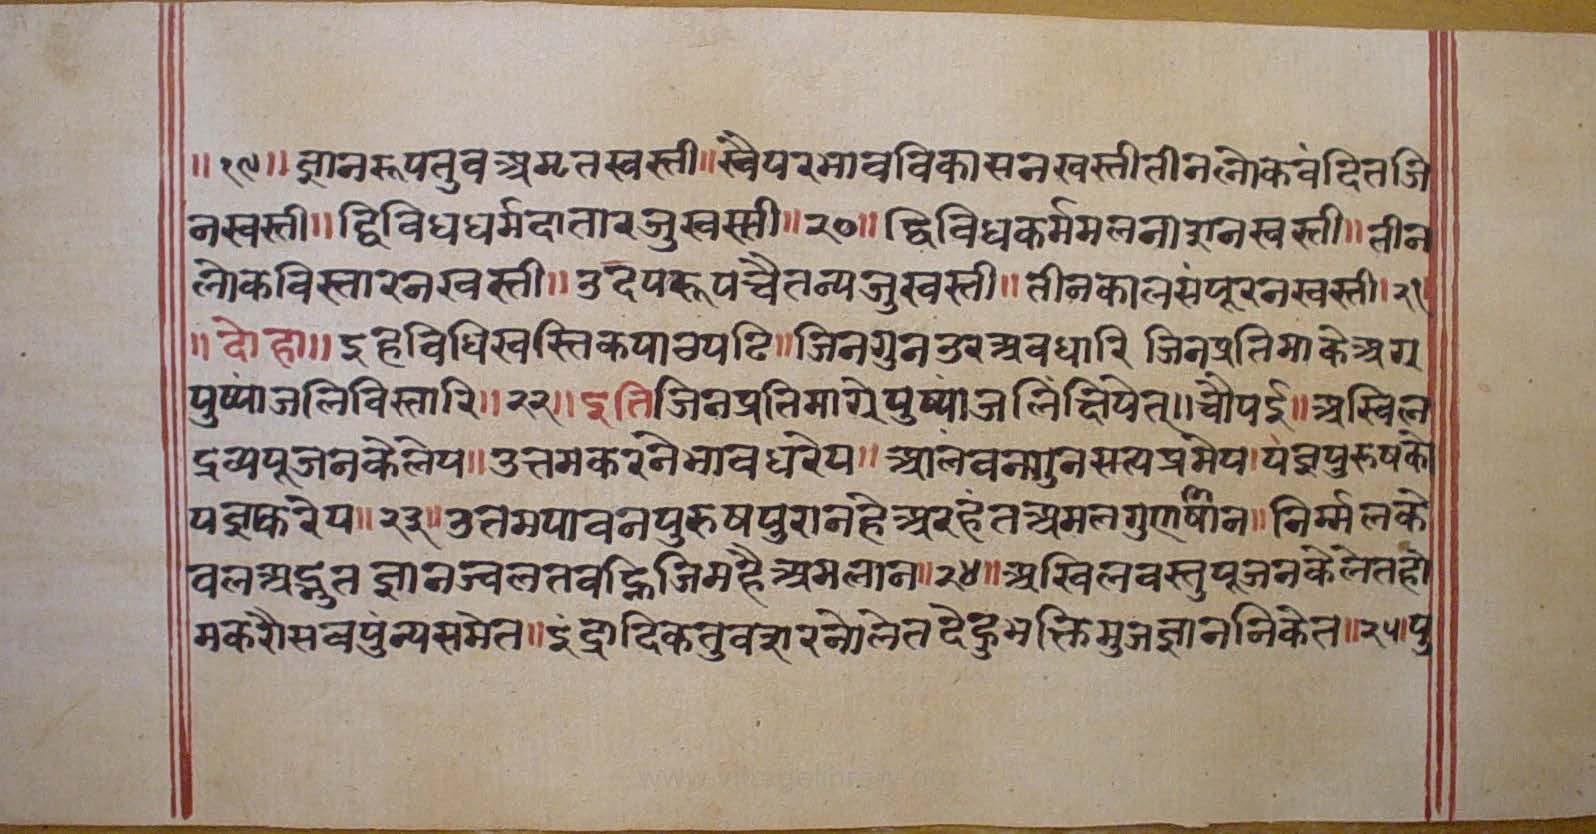 ॥१९॥ज्ञानरूपतुवअमृतस्वस्ती॥स्वैपरभावविकासनस्वस्तीतीनलोकवंदितजि
नस्वस्ती॥द्विविधधर्मदातारजुस्वस्ती॥२०॥द्विविधकर्ममलनाशनस्वस्ती॥तीन
लोकविस्तारनस्वस्ती॥उदयरूपचैतन्यजुस्वस्ती॥तीनकालसंपूरनस्वस्ती।२१
॥दोहा॥इहविधिस्वस्तिकपाठपढि॥जिनगुनउरअवधारि जिनप्रतिमाकेअग्र
पुष्पांजलिविस्तारि॥२२॥इतिजिनप्रतिमाग्रेपुष्पांजलिंक्षिपेत्॥चौपई॥अखिल
द्रव्यपूजनकैलेय॥उत्तमकरनैभावधरेय॥आलंवनगुनसत्यप्रमेय।यंज्ञपुरुषकों
यज्ञकरेय॥२३॥उतमपावनपुरुषपुरानहैअरहंतअमलगुणषांनि॥निर्म्मलके
वलअद्भुतज्ञानज्वलतवह्निजिमहैअमलान॥२४॥अखिलवस्तुपूजनकैलेतहो
मकरौसवपुंन्यसमेत॥इंद्रादिकतुवशरनोलेतदेहुभक्तिमुजज्ञाननिकेत॥२५।पु